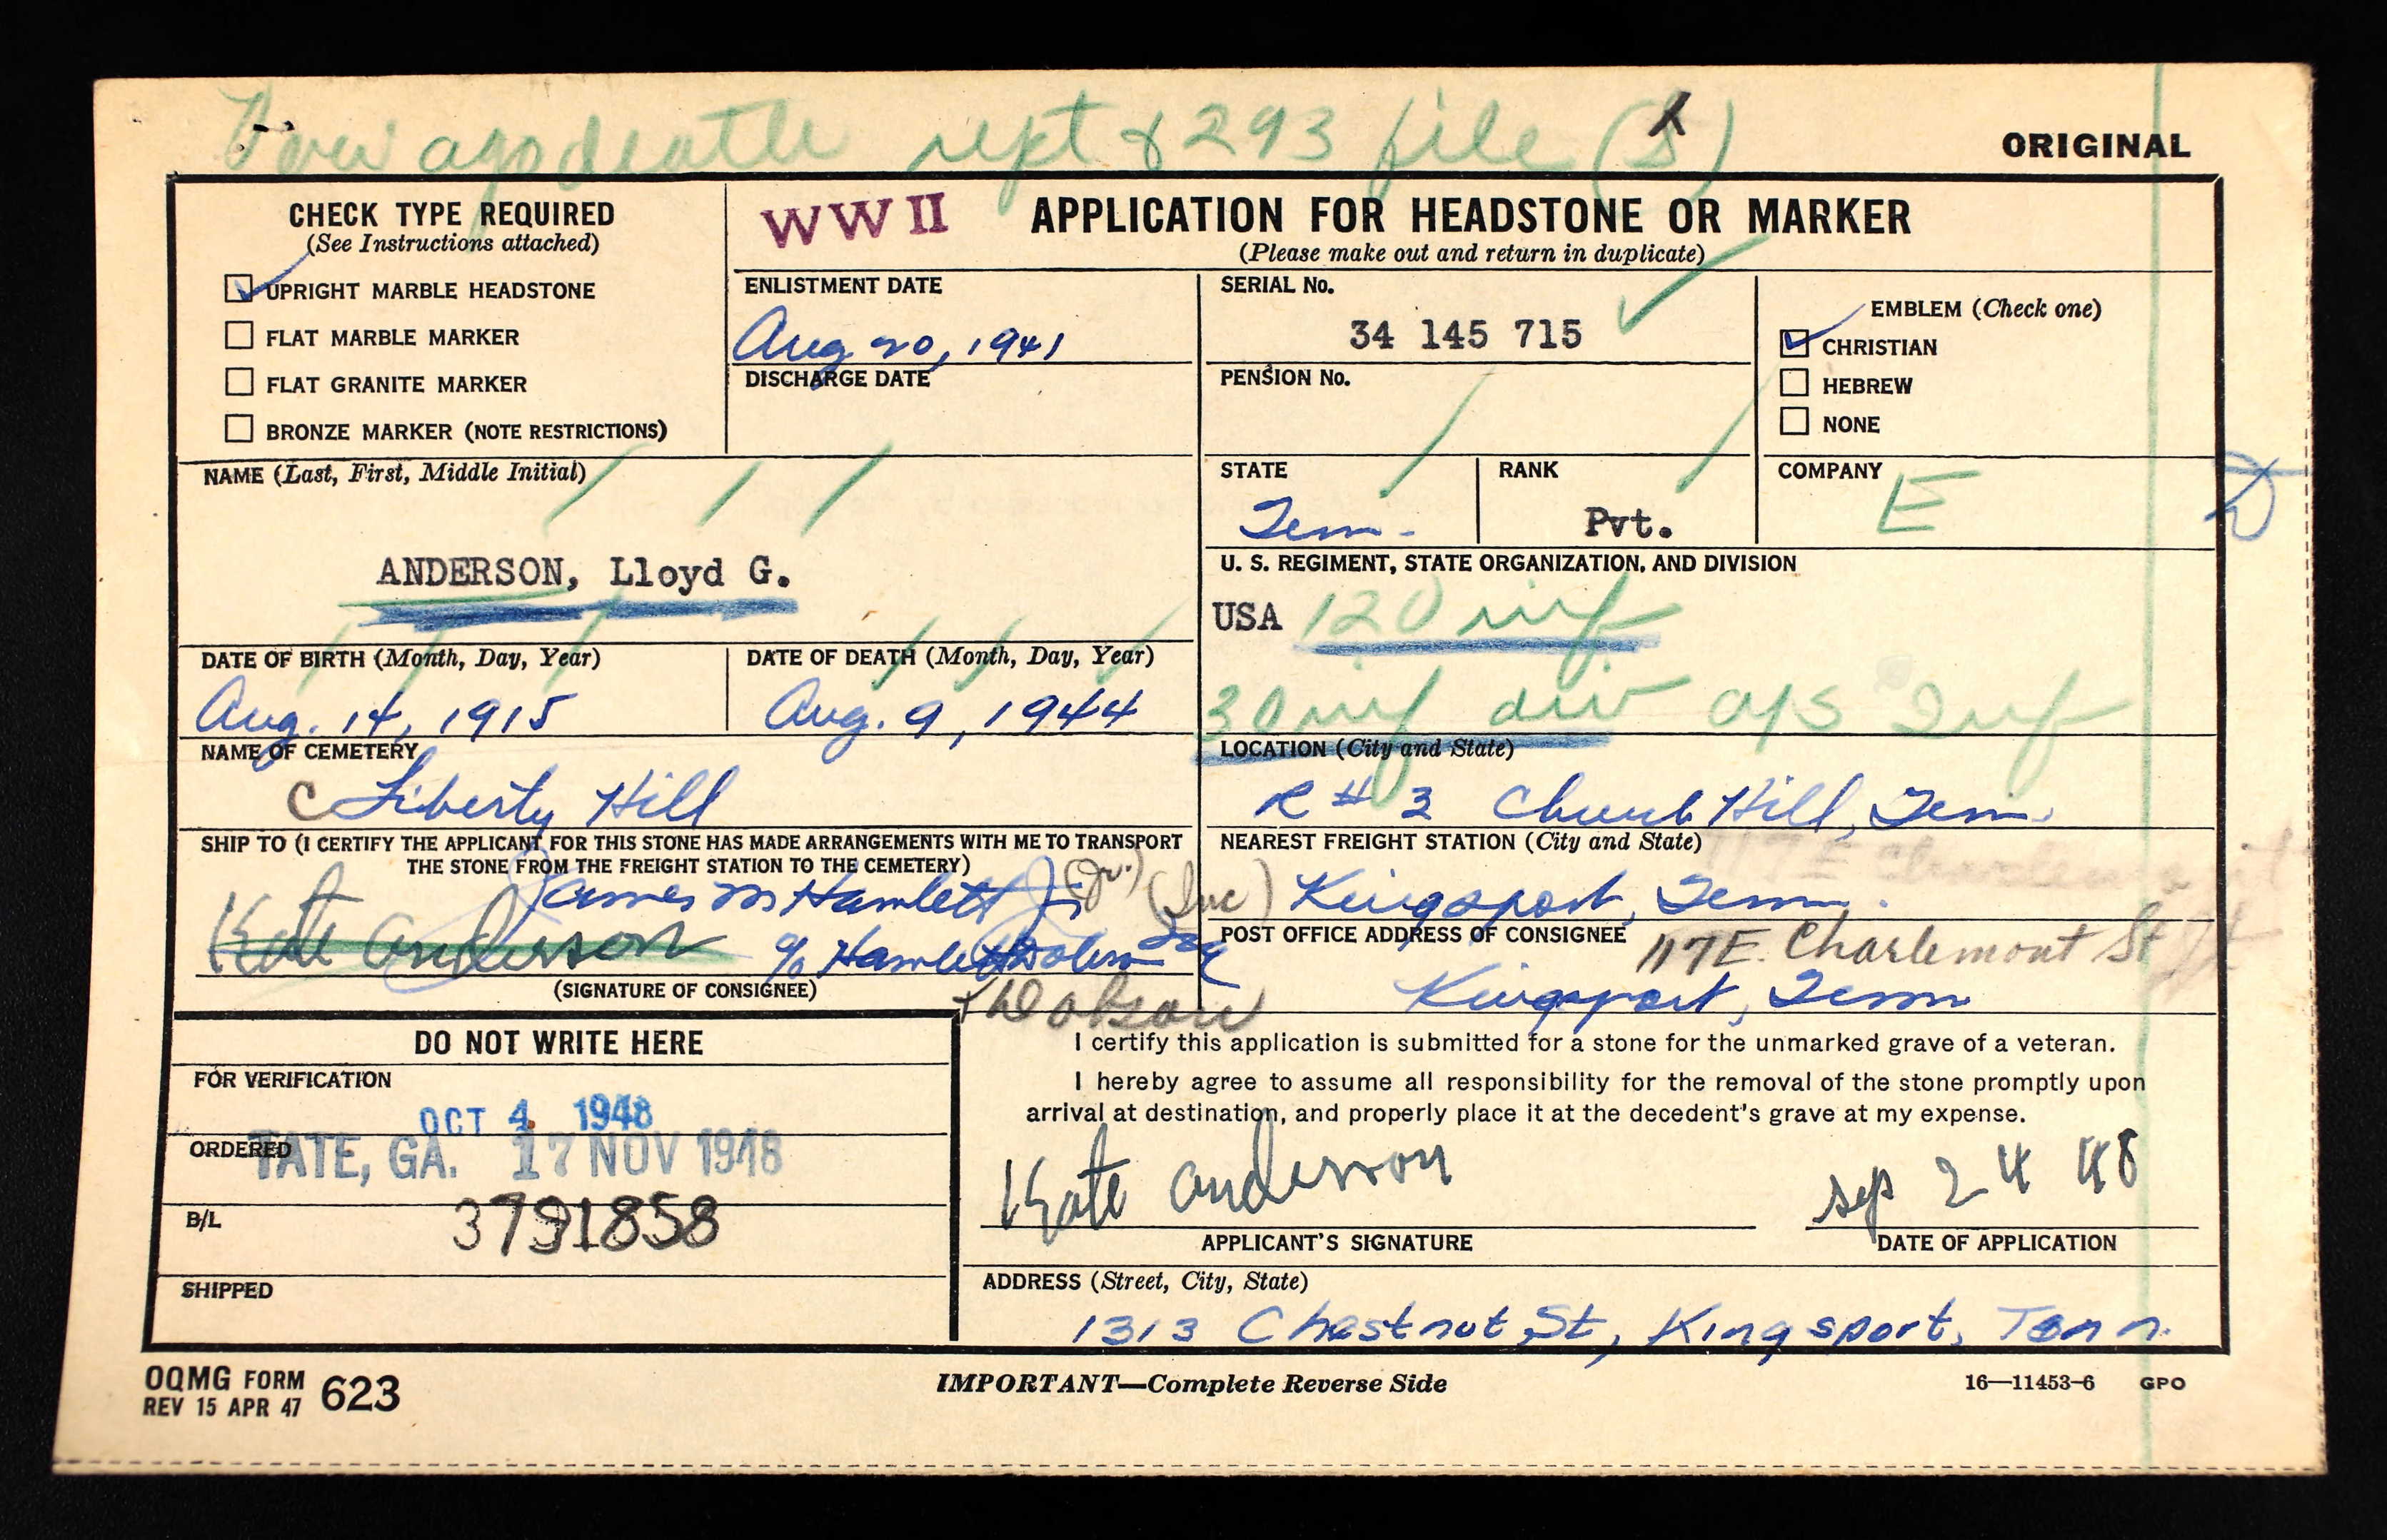 ago death rept & 293 file
ORIGINAL
CHECK TYPE REQUIRED
(See Instructions attached)
UPRIGHT MARBLE HEADSTONE
FLAT MARBLE MARKER
FLAT GRANITE MARKER
BRONZE MARKER (NOTE RESTRICTIONS)
WW II
APPLICATION FOR HEADSTONE OR MARKER
(Please make out and return in duplicate)
ENLISTMENT DATE
Aug 20, 1941
DISCHARGE DATE
SERIAL No.
34 145 715
PENSION No.
EMBLEM (Check one)
CHRISTIAN
HEBREW
NONE
NAME (Last, First, Middle Initial)
ANDERSON, Lloyd G.
STATE
Tenn.
RANK
Pvt.
COMPANY
E
D
U. S. REGIMENT, STATE ORGANIZATION, AND DIVISION
USA 120 inf
30 inf div a/s Inf
DATE OF BIRTH (Month, Day, Year)
Aug. 14, 1915
DATE OF DEATH (Month, Day, Year)
Aug. 9, 1944
NAME OF CEMETERY
C Liberty Hill
LOCATION (City and State)
R # 2 Church Hill, Tenn.
SHIP TO (I CERTIFY THE APPLICANT FOR THIS STONE HAS MADE ARRANGEMENTS WITH ME TO TRANSPORT
THE STONE FROM THE FREIGHT STATION TO THE CEMETERY)
James M Hamlett Jr (Jr.) (Inc)
Kate Anderson c/o Hamlett Dobson Inc
+ Dobson
(SIGNATURE OF CONSIGNEE)
NEAREST FREIGHT STATION (City and State)
117 E Charlemont
Kingsport, Tenn.
POST OFFICE ADDRESS OF CONSIGNEE
117 E. Charlemont St
Kingsport, Tenn
DO NOT WRITE HERE
FOR VERIFICATION
OCT 4 1948
ORDERED
TATE, GA. 17 NOV 1948
B/L
3791858
SHIPPED
I certify this application is submitted for a stone for the unmarked grave of a veteran.
I hereby agree to assume all responsibility for the removal of the stone promptly upon
arrival at destination, and properly place it at the decedent's grave at my expense.
Kate Anderson
APPLICANT'S SIGNATURE
sep 24 48
DATE OF APPLICATION
ADDRESS (Street, City, State)
1313 Chestnut St, Kingsport, Tenn.
OQMG FORM 623
REV 15 APR 47
IMPORTANT—Complete Reverse Side
16—11453-6 GPO